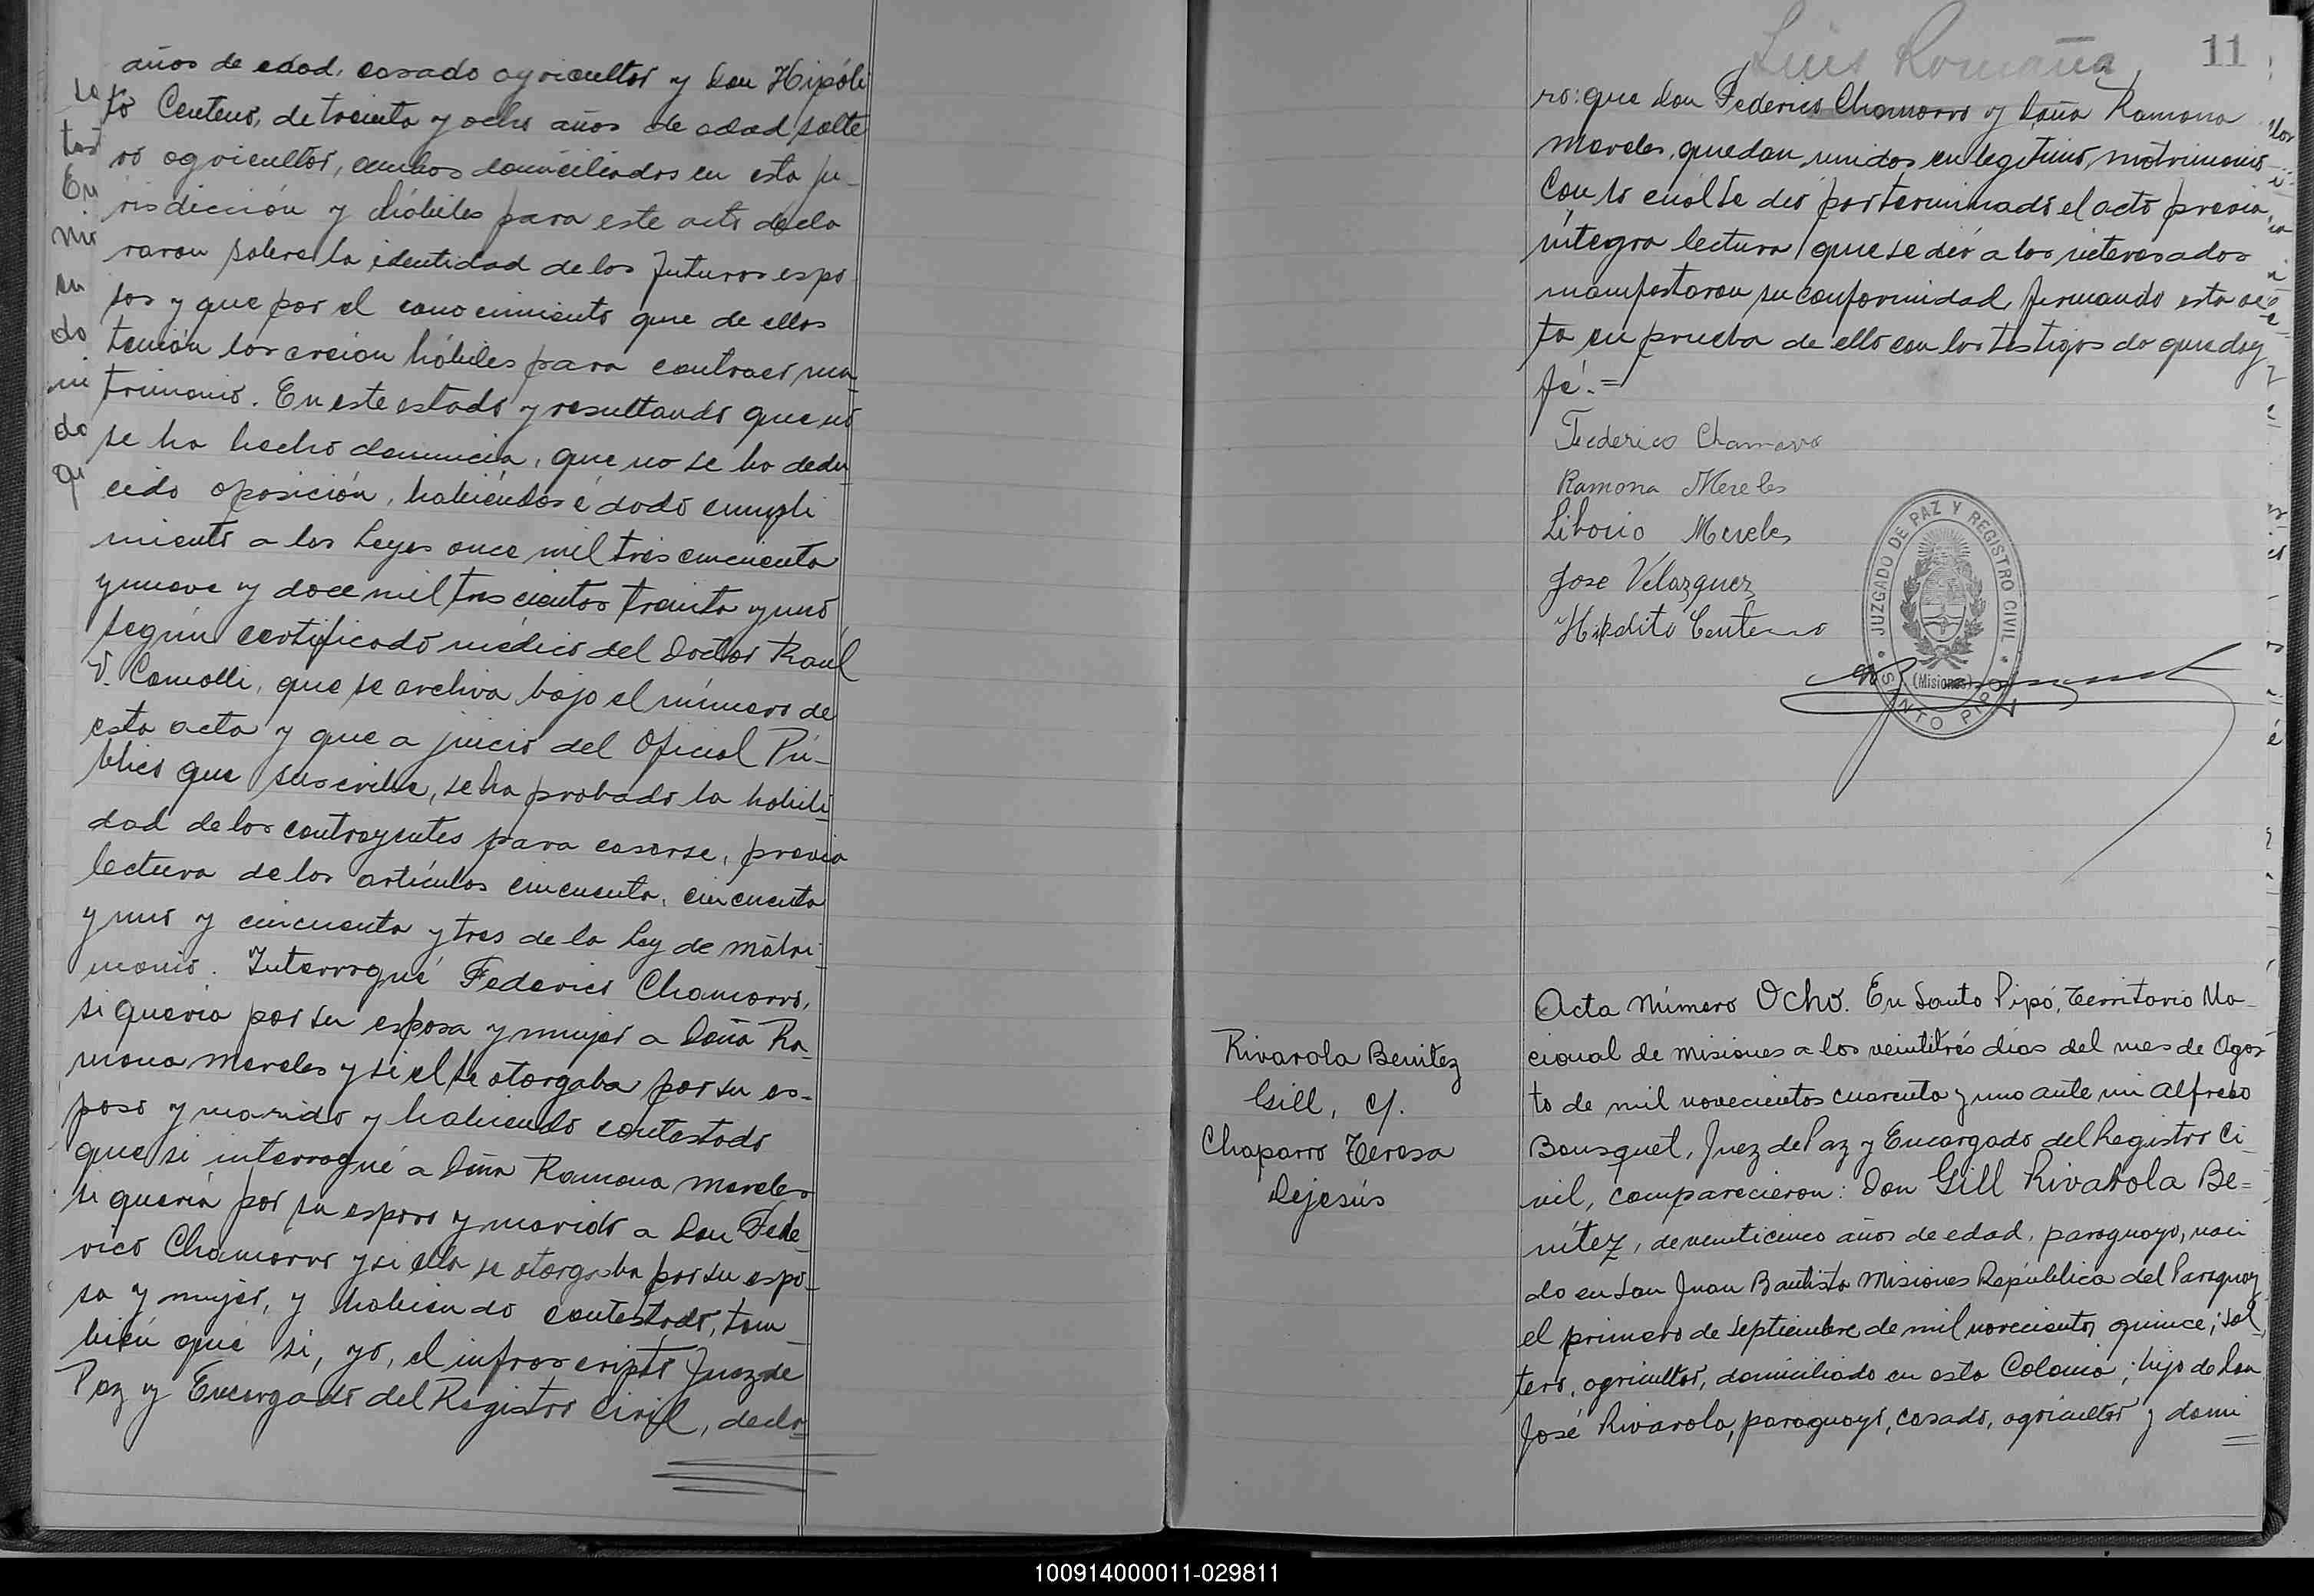 años de edad, casado agricultor y Don Hipóli
to Centeno, de treinta y ocho años de edad solte
ro agricultor, ambos domiciliados en esta ju-
risdicción y hábiles para este acto decla
raron sobre la identidad de los futuros espo
sos y que por el conocimiento que de ellos
tenían los creían hábiles para contraer ma-
trimonio. En este estado y resultando que no
se ha hecho denuncia, que no se ha dedu
cido oposición, habiéndose dado cumpli
miento a las Leyes once mil tres cincuenta
y nueve y doce mil trescientos treinta y uno
según certificado médico del Doctor Raúl
V. Comolli, que se archiva bajo el número de
esta acta y que a juicio del Oficial Pú-
blico que suscribe, se ha probado la habili-
dad de los contrayentes para casarse, previa
lectura de los artículos cincuenta, cincuenta
y uno y cincuenta y tres de la Ley de matri-
monio. Interrogué Federico Chamorro,
si quería por su esposa y mujer a Doña Ra-
mona Mereles y si el se otorgaba por su es-
poso y marido y habiendo contestado
que si interrogué a Doña Ramona Mereles
si quería por su esposo y marido a Don Fede-
rico Chamorro y si ella se otorgaba por su espo-
sa y mujer, y habiendo contestado, tam-
bién que si, yo, el infrascripto Juez de
Paz y Encargado del Registro Civil, decla-
Luis Romaña
11
ro: que Don Federico Chamorro y Doña Ramona
Mereles, quedan unidos en legítimo matrimonio
Con lo cuál se dió por terminado el acto previa
íntegra lectura que se dió a los interesados
manifestaron su conformidad firmando esta ac-
ta en prueba de ello con los testigos do que doy
fé.=
Federico Chamorro
Ramona Mereles
Liborio Mereles
Jose Velazquez
Hipólito Centeno
JUZGADO DE PAZ Y REGISTRO CIVIL
(Misiones)
SANTO PIPÓ
Rivarola Benitez
Gill, c/.
Chaparro Teresa
Dejesús
Acta Número Ocho. En Santo Pipó, Territorio Na-
cional de Misiones a los veintitrés días del mes de Agos-
to de mil novecientos cuarenta y uno ante mi Alfredo
Bousquet, Juez de Paz y Encargado del Registro Ci-
vil, comparecieron: Don Gill Rivarola Be=
nítez, de veinticinco años de edad, paraguayo, naci
do en San Juan Bautista Misiones República del Paraguay
el primero de Septiembre de mil novecientos quince; sol-
tero, agricultor, domiciliado en esta Colonia; hijo de Don
José Rivarola, paraguayo, casado, agricultor y domi
100914000011-029811